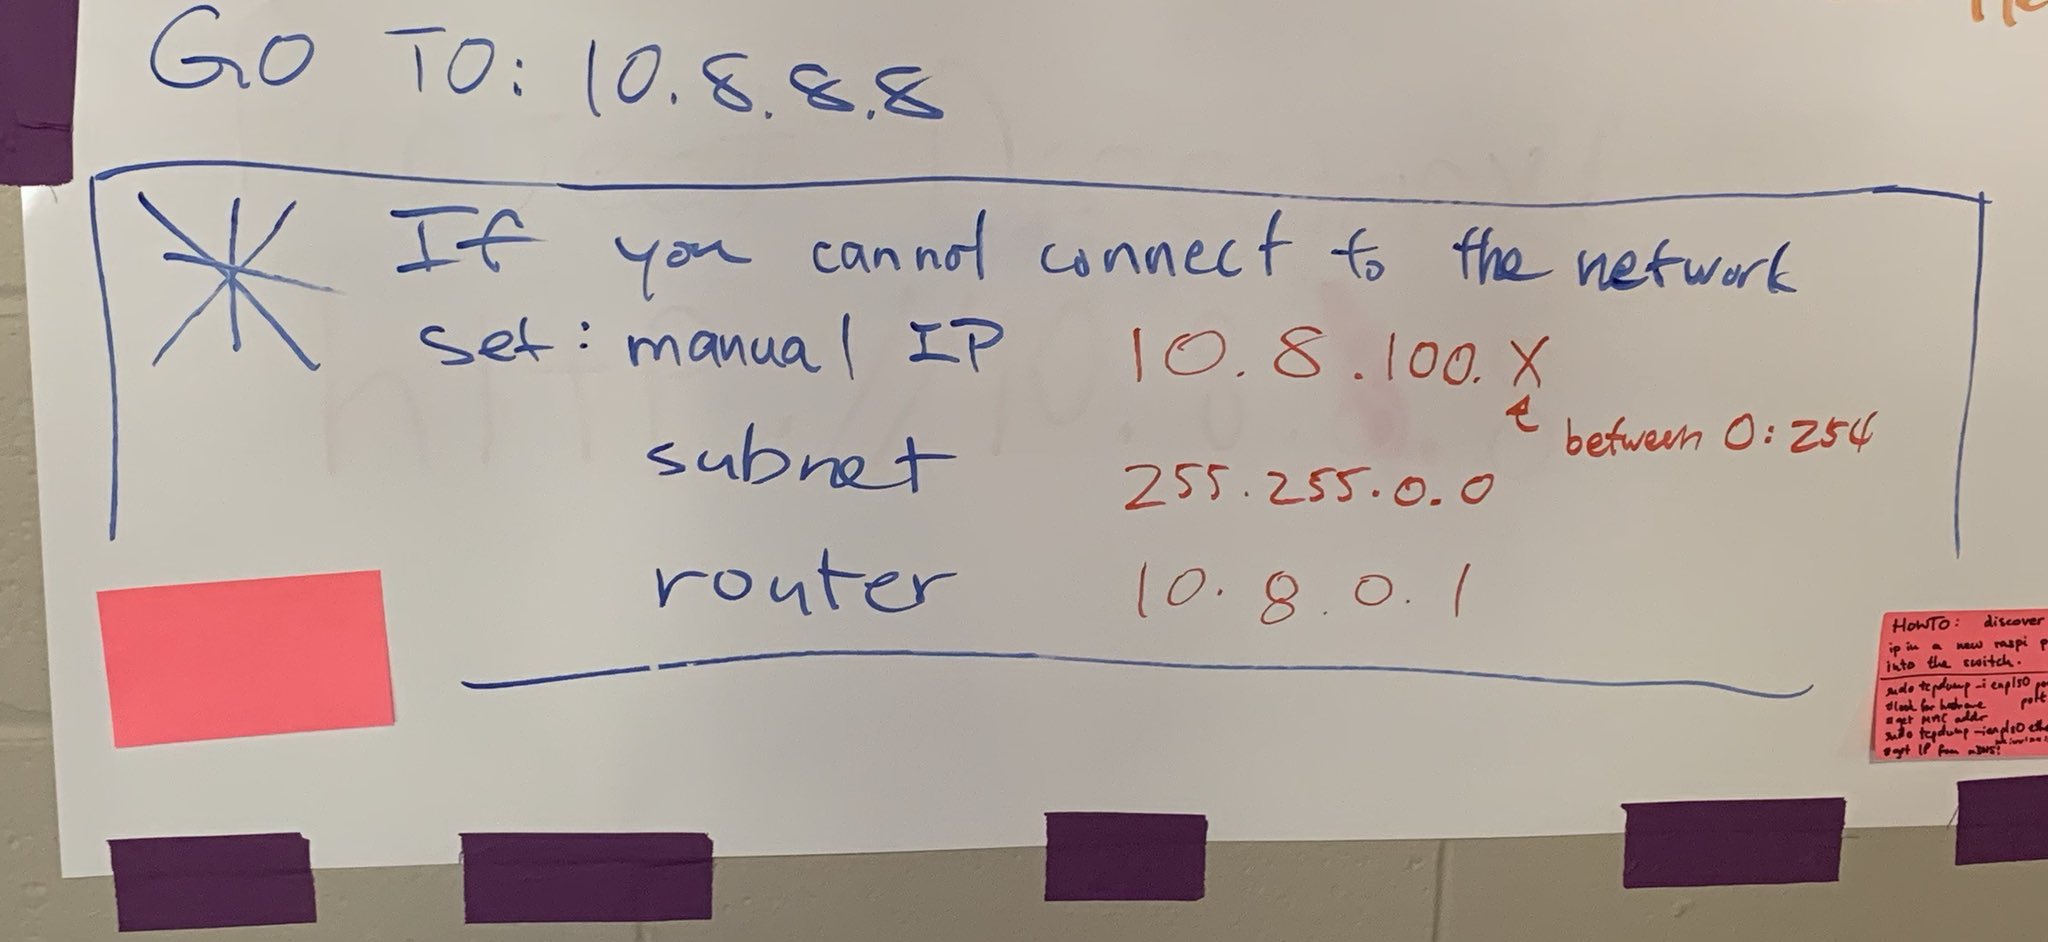 GO TO: 10.8.8.8
If you cannot connect to the network
set: manual IP 10.8.100.X
between 0:254
subnet 255.255.0.0
router 10.8.0.1
HowTo: discover
ip in a new raspi p
into the switch.
sudo tcpdump -i enp1s0
#look for hostname port
#get MAC addr
sudo tcpdump -i enp1s0 ethe
#get IP from mDNS!